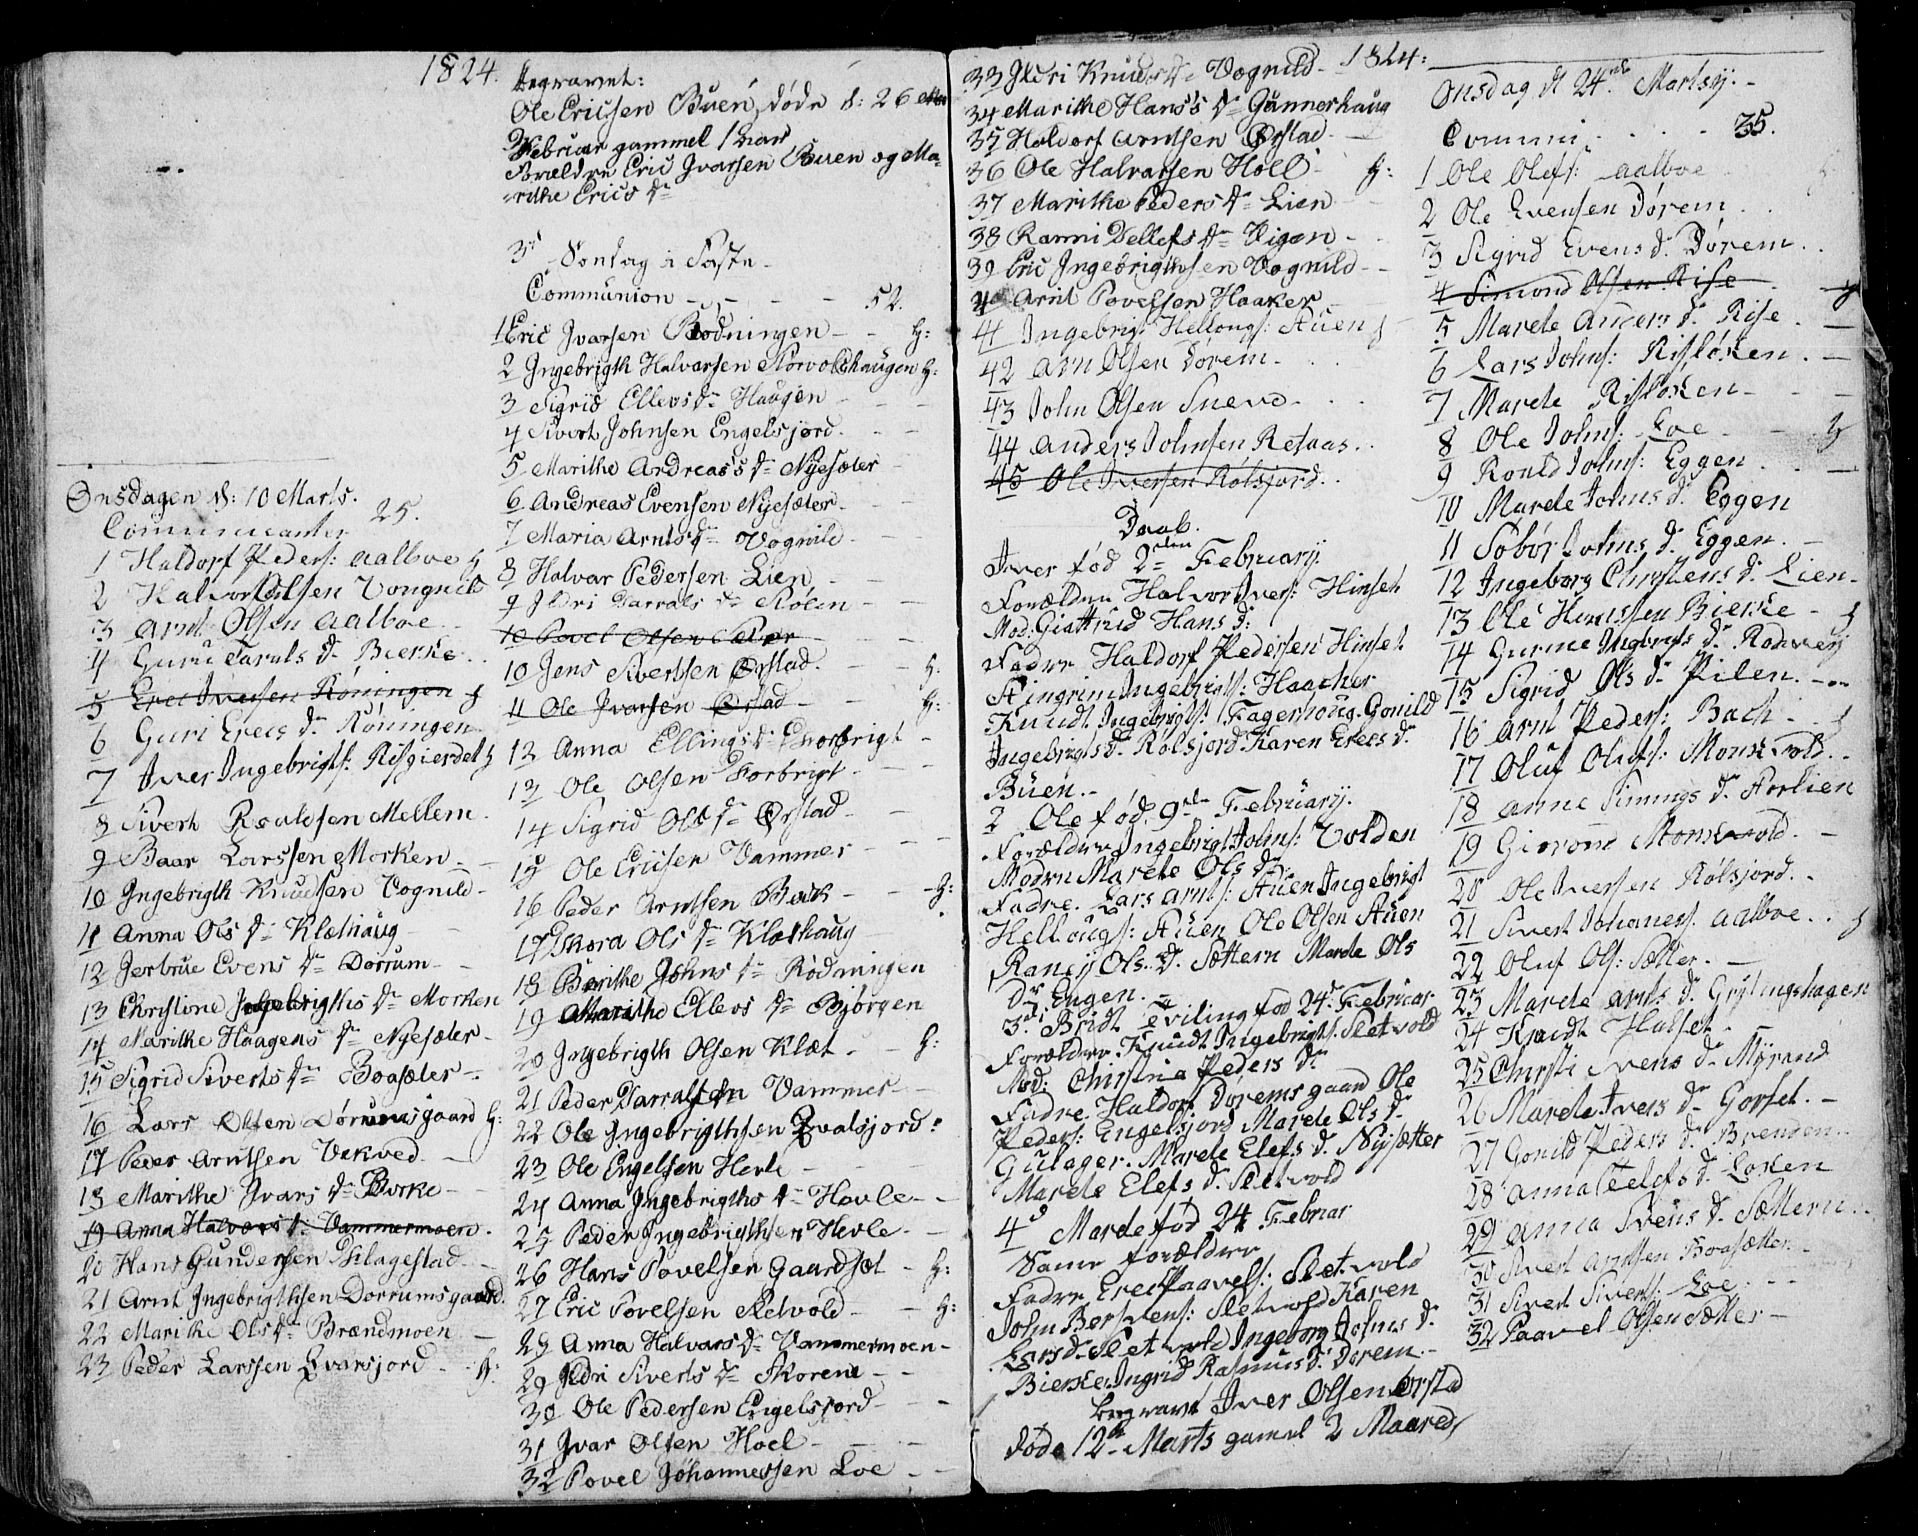 1824.
Onsdagen d: 10 Marts.
Communicanter 25.
1 Haldorf Peders: Aalboe
2 Halvor Olsen Vongnild
3 Arnt Olsen Aalboe
4 Guru Taralds Dr Bierke
5 Erec Iversen Röningen
6 Guri Erecs Dr Röningen
7 Iver Ingebrigts: Risgierdet
8 Sivert Roaldsen Mellem
9 Baar Larssen Morken
10 Ingebrigth Knudsen Vognild
11 Anna Ols Dr Klæthaug
12 Jertrue Evens Dr Dorrum
13 Christine Ingebrigths Dr Morken
14 Marithe Haagens Dr Nyesæter
15 Sigrid Siverts Dr Boasæter
16 Lars Olsen Dørumsgaard H:
17 Peder Arntsen Vekved
18 Marithe Ivars Dr Birke
19 Anna Halvors Dr Vammermoen
20 Hans Gundersen Slagestad
21 Arnt Ingebrigthsen Dorrumsgaard
22 Marithe Ols Dr Brændmoen
23 Peder Larssen Qvarsjord H:
Begravet:
Ole Ericsen Buen, døde d: 26
Februar gammel 1 aar
Forældre Eric Ivarsen Buen og Ma-
rithe Erics Dr
3d Søntag i Faste
Communion 52.
1 Eric Ivarsen Rodningen H:
2 Ingebrigth Halvarsen Storvoldhaugen H:
3 Sigrid Ellevs Dr Haugen
4 Sivert Johnsen Engelsjord
5 Marithe Andreas's Dr Nyesæter
6 Andreas Evensen Nyesæter
7 Maria Arnts Dr Vognild
8 Halvar Pedersen Lien
9 Ildri Harrals Dr Stölen
10 Povel Olsen
10 Jens Sivertsen Ørstad H:
11 Ole Ivarsen Ørstad H:
12 Anna Ellings Dr Forbrigt
13 Ole Olsen Forbrigt
14 Sigrid Ols Dr Ørstad
15 Ole Ericsen Vammer
16 Peder Arntsen Bach H:
17 Skora Ols Dr Klæthaug
18 Berithe Johns Dr Rödningen
19 Marithe Ellevs Dr Bjørgen
20 Ingebrigth Olsen Klæt H:
21 Peder Harraldsen Vammer
22 Ole Ingebrigthsen Qvalsjord
23 Ole Engelsen Hevle
24 Anna Ingebrigths Dr Hevle
25 Peder Ingebrigthsen Hevle
26 Hans Povelsen Gaardsæt H:
27 Eric Povelsen Sletvold H:
28 Anna Halvars Dr Vammermoen
29 Ildri Siverts Dr Skorem
30 Ole Pedersen Engelsjord
31 Ivar Olsen Hoel
32 Povel Johannessen Loe
1824:
33 Ildri Knuds Dr Vognild
34 Marithe Hans's Dr Gunnershaug
35 Haldorf Arntsen Ørstad
36 Ole Halvarsen Holl H:
37 Marithe Peders Dr Lien
38 Ranni Dellefs Dr Vigen
39 Eric Ingebrigthsen Vognild
40 Arnt Povelsen Haaker
41 Ingebrigt Hellougs: Auen
42 Arn Olsen Dörem
43 John Olsen Sneve
44 Anders Johnsen Refaas
45 Ole Iversen Rölsjord
Daab.
Iver fød 2den Februarij
Forældre Halvor Ivers: Hinset
Mod: Giattrud Hans D:
Fadre Haldorf Pedersen Hinset
Aingrim Ingebrigts: Haacher
Knudt Ingebrigts: Fagerhoug. Gonild
Ingebrigts Dr Rölsjord Karen Erecs Dr
Büen.
2 Ole fød 9de Februarij.
Forældre Ingebrigt Johns: Volden
Modern Marete Ols Dr
Fadre. Lars Arnts: Auen Ingebrigt
Hellougs: Auen Ole Olsen Auen
Ranej Ols. D. Sættern Marete Ols
Dr Engen.
3. Bridt Tviling fød 24d Februar.
Forældre. Knudt Ingebrigts. Sletvold
Mod: Christine Peders Dr
Fadre. Haldorf Döremsgaard Ole
Peders: Engelsjord Marete Ols Dr
Gulager. Marete Elefs D. Nysætter
Marete Elefs D. Sletvold
4d Marete fød 24 Februar
Samme Forældre
Fadre Erec Paavels: Sletvold
John Bersvens: Sletvold Karen
Lars D. Sletvold Ingeborg Johns Dr
Bierke. Ingrid Rasmus D. Dorem.
Begravet Iver Olsen Ørstad
døde 12te Marts gamel 2 Maaned
Onsdag d 24de Martsij.
Communi 35.
1 Ole Olefs: Aalboe
2 Ole Evensen Dørem
3 Sigrid Evens D. Dörem
4 Simond Olsen Rise
5 Marete Anders Dr Rise
6 Lars Johns: Rislöken
7 Marete Rislöken
8 Ole Johns: Loe
9 Ronld Johns: Eggen
10 Marete Johns D. Eggen
11 Sobör Johns D. Eggen
12 Ingeborg Chrystens D. Lien
13 Ole Hanssen Bierke
14 Gurine Ingebrigts Dr
15 Sigrid Ols Dr Pilen
16 Arnt Peders: Bach
17 Oluf Olufs: Monsvold
18 Anne Simings D.
19 Monsvold
20 Ole Iversen Rölsjord
21 Sivert Johaness: Aalboe
22 Oluf Ols: Sætter
23 Marete Arnts D. Grytingshagen
24 Knudt Halset
25 Christi Svens Dr Myrand
26 Marete Ivers Dr Gorset
27 Gonild Peders Dr Brenden
28 Anna Elefs D. Loken
29 Anna Svens Dr Sættern
30 Sivert Arntsen Boasætter
31 Sivert Siverts: Loe
32 Paavel Olsen Sætter